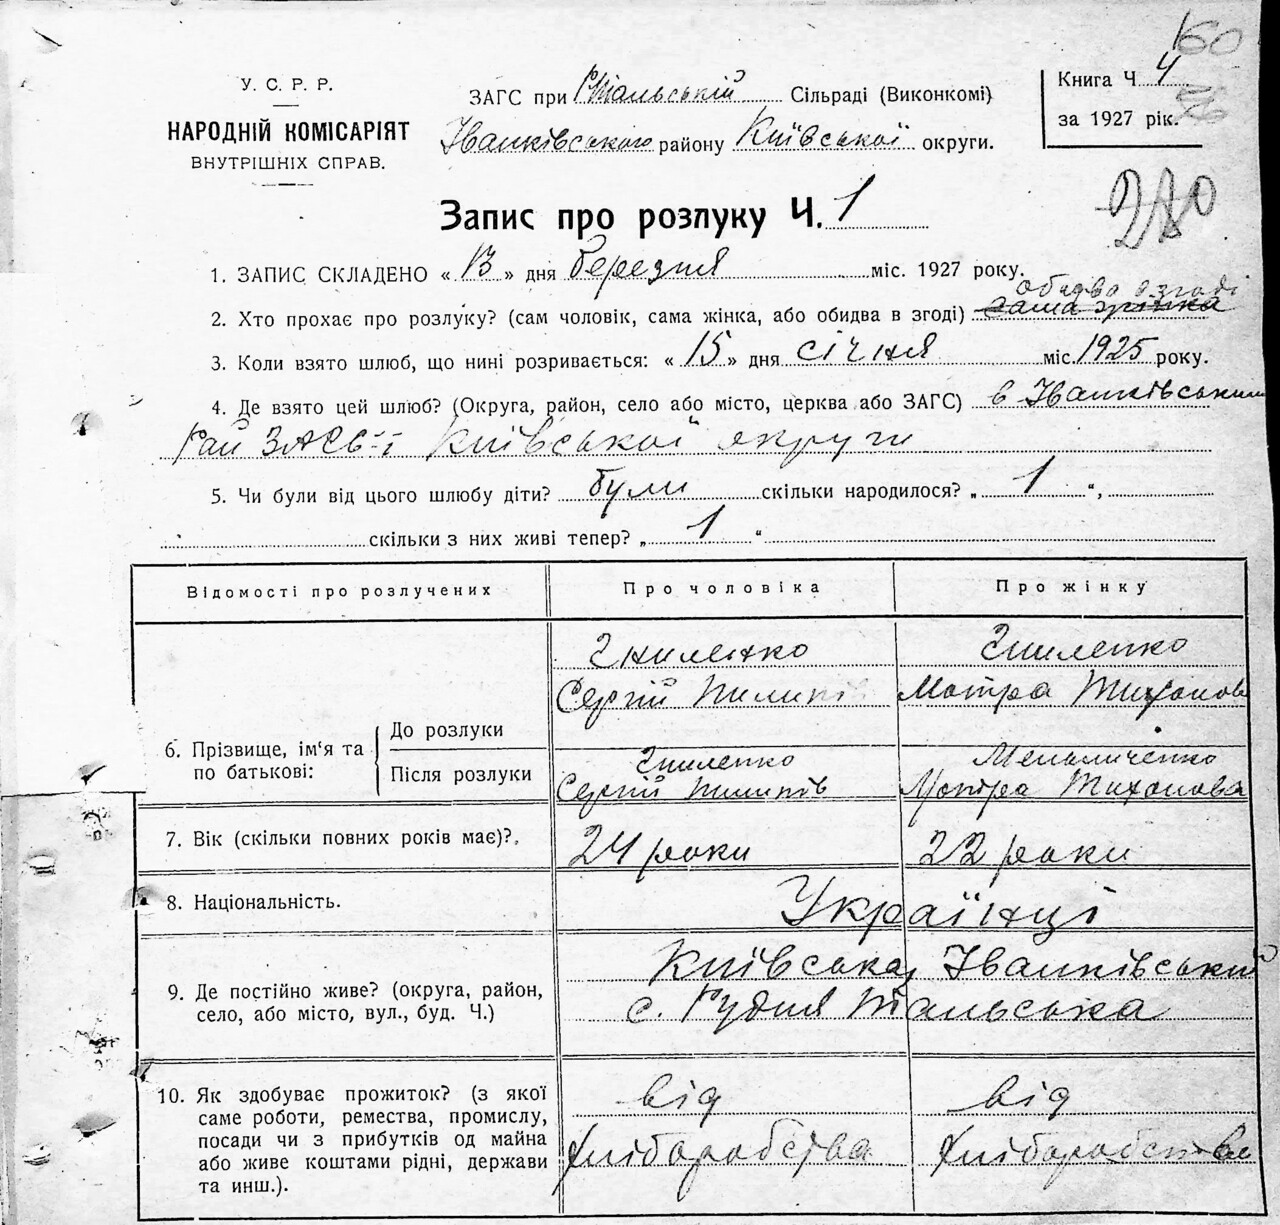 160
76
У. С. Р. Р.
НАРОДНІЙ КОМІСАРІЯТ
ВНУТРІШНІХ СПРАВ.
ЗАГС при Стальській Сільраді (Виконкомі)
Іванківського району Київської округи.
Книга Ч 4
за 1927 рік.
210
Запис про розлуку Ч. 1
1. ЗАПИС СКЛАДЕНО « 13 » дня березня міс. 1927 року.
обидва в згоді
2. Хто прохає про розлуку? (сам чоловік, сама жінка, або обидва в згоді) сама жінка
3. Коли взято шлюб, що нині розривається: « 15 » дня січня міс. 1925 року.
4. Де взято цей шлюб? (Округа, район, село або місто, церква або ЗАГС) в Іванківським
Рай ЗАГС-і Київської округи
5. Чи були від цього шлюбу діти? були скільки народилося? „ 1 “,
скільки з них живі тепер? „ 1 “
Відомості про розлучених Про чоловіка Про жінку
6. Прізвище, ім'я та по батькові:
До розлуки
Гниленко Сергій Пилипів
Гниленко Мотра Тихонова
Після розлуки
Гниленко Сергій Пилипів
Мельниченко Мотра Тихонова
7. Вік (скільки повних років має)?. 24 роки 22 роки
8. Національність. Українці
9. Де постійно живе? (округа, район,
село, або місто, вул., буд. Ч.)
Київська, Іванківський
с. Рудня Тальська
10. Як здобуває прожиток? (з якої
саме роботи, ремества, промислу,
посади чи з прибутків од майна
або живе коштами рідні, держави
та инш.).
від хліборобства
від хліборобства